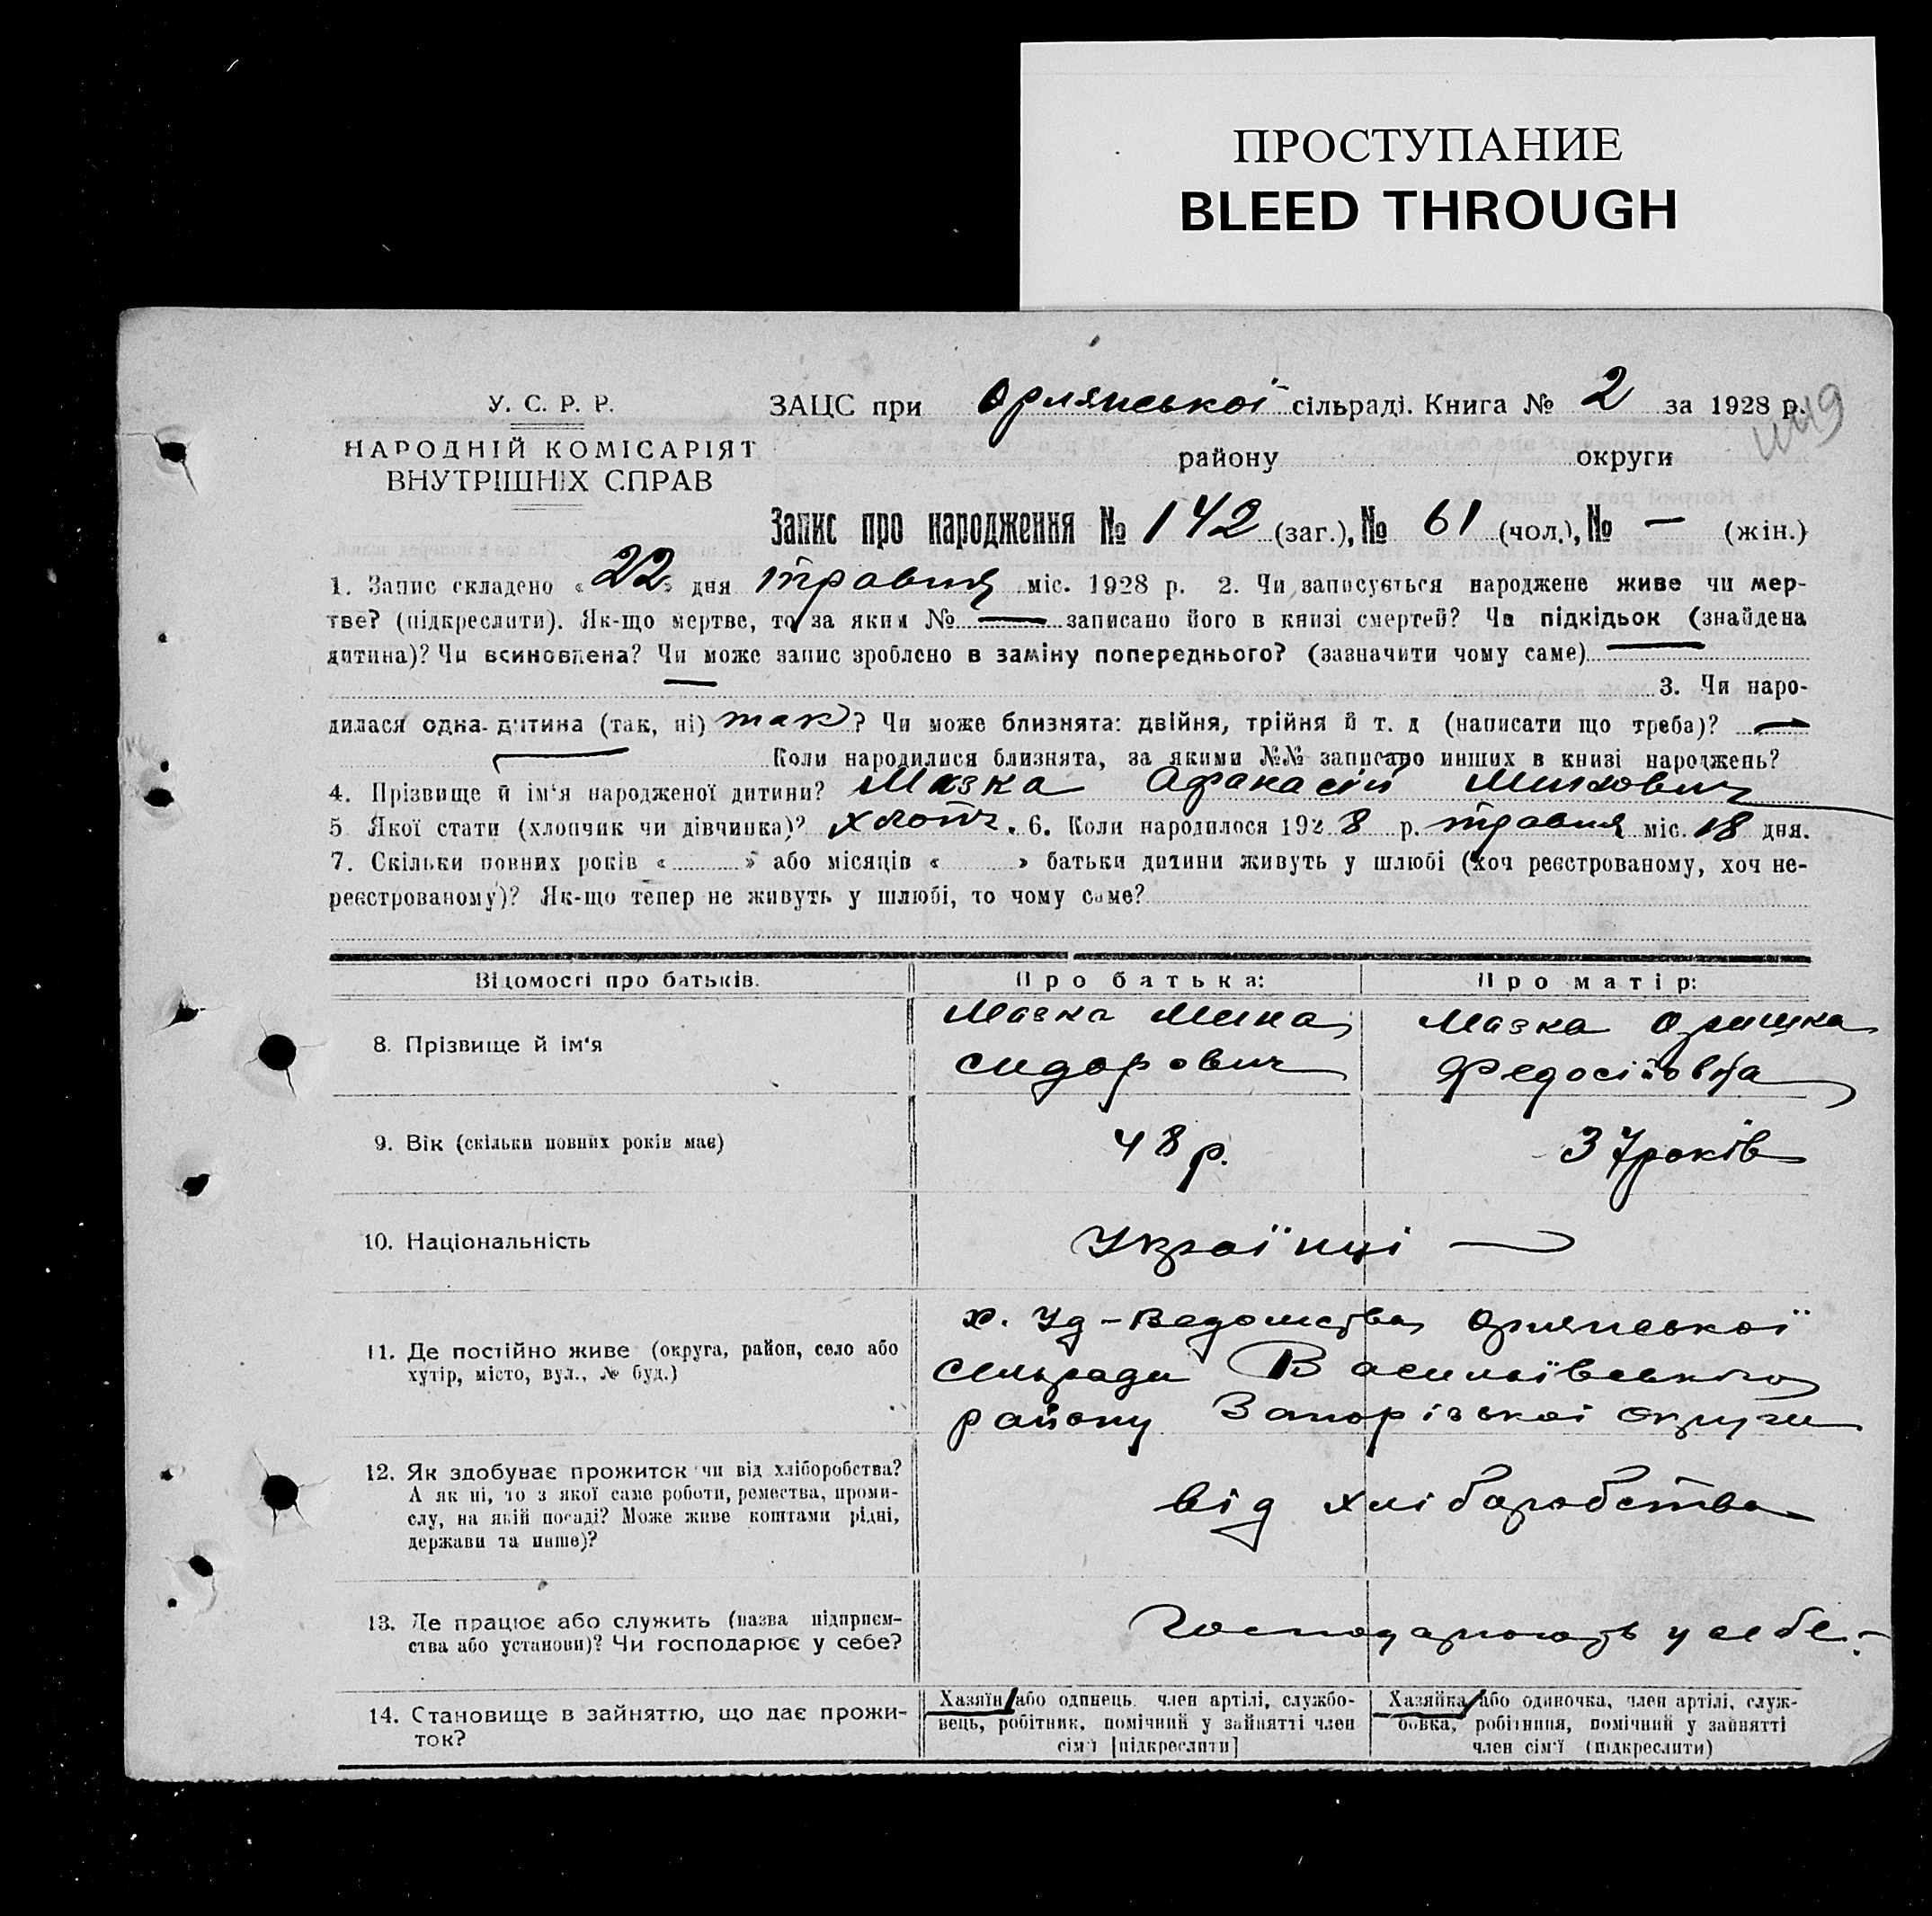 ПРОСТУПАНИЕ
BLEED THROUGH
У. С. Р. Р.
НАРОДНІЙ КОМІСАРІЯТ
ВНУТРІШНІХ СПРАВ
ЗАЦС при Орлянської сільраді. Книга № 2 за 1928 р.
району округи
Запис про народження № 142 (заг.), № 61 (чол.), № — (жін.)
1. Запис складено « 22 » дня травня міс. 1928 р. 2. Чи записується народжене живе чи мер-
тве? (підкреслити). Як-що мертве, то за яким № — записано його в книзі смертей? Чи підкідьок (знайдена
дитина)? Чи всиновлена? Чи може запис зроблено в заміну попереднього? (зазначити чому саме) —
— 3. Чи наро-
дилася одна дитина (так, ні) так? Чи може близнята: двійня, трійня й т. д (написати що треба)? —
— Коли народилися близнята, за якими №№ записано инших в книзі народжень?
4. Прізвище й ім‘я народженої дитини? Мазка Афанасій Минович
5 Якої стати (хлопчик чи дівчинка)? хлопч. 6. Коли народилося 1928 р. травня міс. 18 дня.
7. Скільки повних років « » або місяців « » батьки дитини живуть у шлюбі (хоч реєстрованому, хоч не-
реєстрованому)? Як-що тепер не живуть у шлюбі, то чому саме?
Відомості про батьків. Про батька: Про матір:
8. Прізвище й ім‘я Мазка Мина Сидорович Мазка Оришка Федосіївна
9. Вік (скільки повних років має) 48 р. 37 років
10. Національність Українці —
11. Де постійно живе (округа, район, село або
хутір, місто, вул., № буд.)
х. Уд-Ведомства Орлянської
Сельради Василівського
району Запорізької округи
12. Як здобуває прожиток чи від хліборобства?
А як ні, то з якої саме роботи, ремества, проми-
слу, на якій посаді? Може живе коштами рідні,
держави та инше)?
від хліборобства
13. Де працює або служить (назва підприєм-
ства або установи)? Чи господарює у себе?
Господарюють у себе.
14. Становище в зайняттю, що дає прожи-
ток?
Хазяїн або одинець член артілі, службо-
вець, робітник, помічний у зайнятті член
сім'ї [підкреслити]
Хазяйка або одиночка, член артілі, служ-
бовка, робітниця, помічний у зайнятті
член сім'ї (підкреслити)